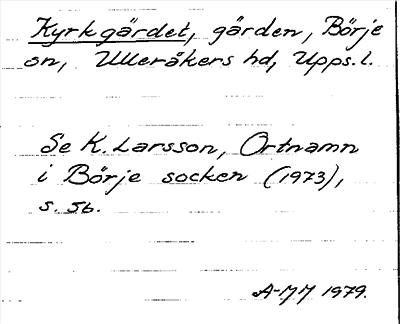 Kyrkgärdet, gården, Börje
sn, Ulleråkers hd, Upps. l.
Se K. Larsson, Ortnamn
i Börje socken (1973),
s. 56.
A-MM 1979.